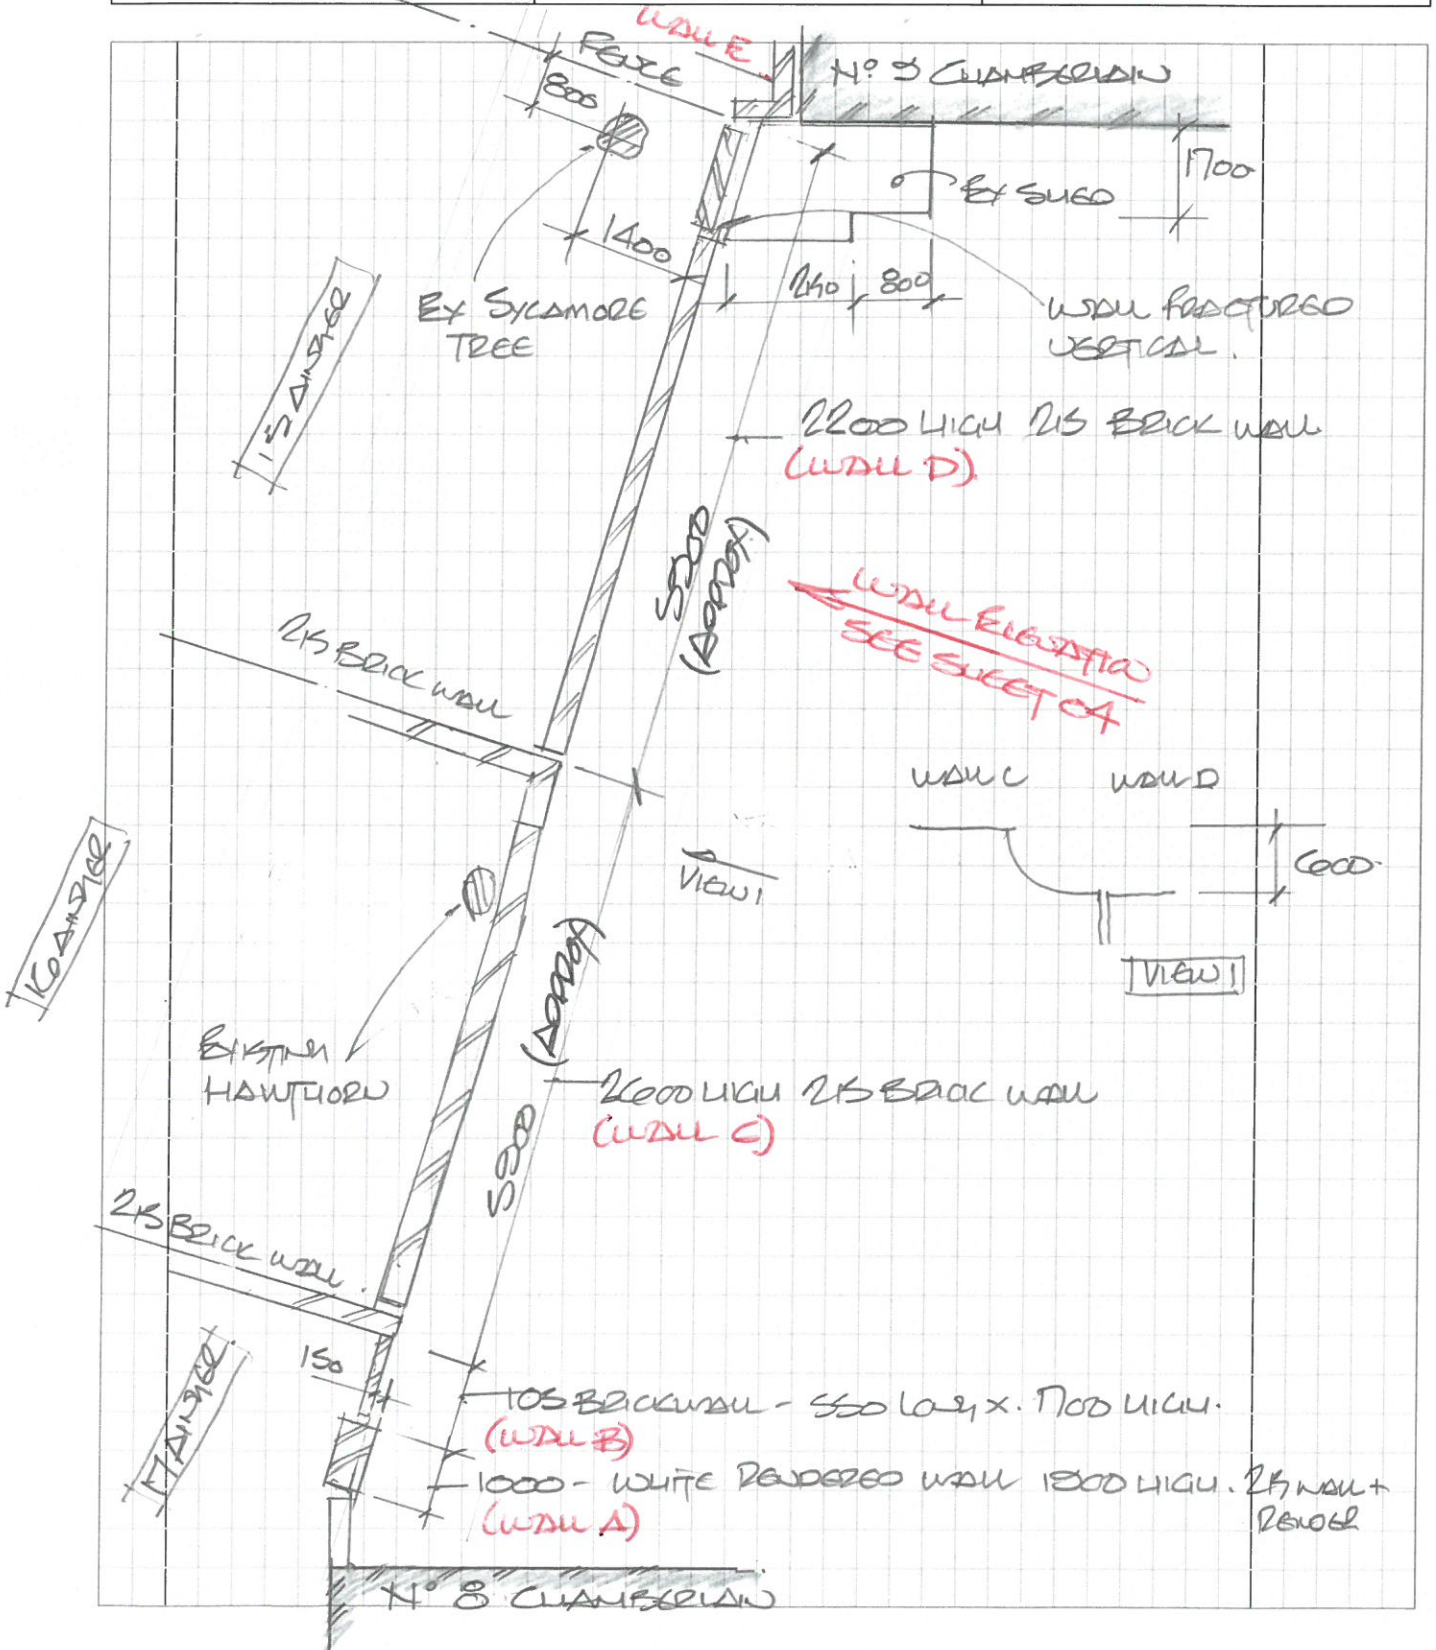 WALL E
FENCE
Nº 9 CHAMBERLAIN
800
1700
EX SHED
1400
EX SYCAMORE
TREE
800
WALL FRACTURED
VERTICAL.
15 AINGER
2200 HIGH 215 BRICK WALL
(WALL D)
(APPROX)
WALL ELEVATION
SEE SHEET 04
215 BRICK WALL
WALL C
WALL D
600
VIEW 1
VIEW 1
16 AINGER
(APPROX)
EXISTING
HAWTHORN
2600 HIGH 215 BRICK WALL
(WALL C)
215 BRICK WALL.
150
17 AINGER.
105 BRICKWALL - 550 LONG X. 1700 HIGH.
(WALL B)
1000 - WHITE RENDERED WALL 1800 HIGH. 215 WALL +
RENDER
(WALL A)
Nº 8 CHAMBERLAIN